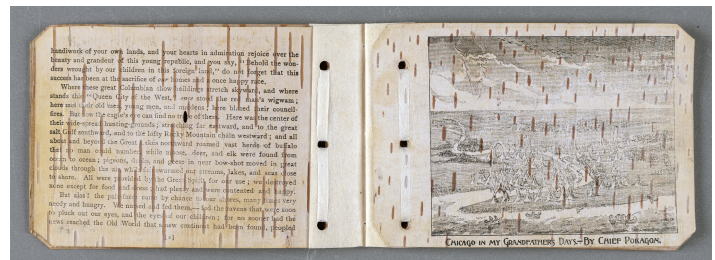 handiwork of your own lands, and your hearts in admiration rejoice over the
beauty and grandeur of this young republic, and you say, "Behold the won-
ders wrought by our children in this foreign land," do not forget that this
success has been at the sacrifice of our homes and a once happy race.
Where these great Columbian show-buildings stretch skyward, and where
stands this "Queen City of the West," once stood the red man's wigwam;
here met their old men, young men, and maidens; here blazed their council-
fires. But now the eagle's eye can find no trace of them. Here was the center of
their wide-spread hunting-grounds; stretching far eastward, and to the great
salt Gulf southward, and to the lofty Rocky Mountain chain westward; and all
about and beyond the Great Lakes northward roamed vast herds of buffalo
that no man could number, while moose, deer, and elk were found from
ocean to ocean; pigeons, ducks, and geese in near bow-shot moved in great
clouds through the air, while fish swarmed our streams, lakes, and seas close
to shore. All were provided by the Great Spirit for our use; we destroyed
none except for food and dress; had plenty and were contented and happy.
But alas! the pale-faces came by chance to our shores, many times very
needy and hungry. We nursed and fed them,—fed the ravens that were soon
to pluck out our eyes, and the eyes of our children; for no sooner had the
news reached the Old World that a new continent had been found, peopled
CHICAGO IN MY GRANDFATHER'S DAYS.—BY CHIEF POKAGON.